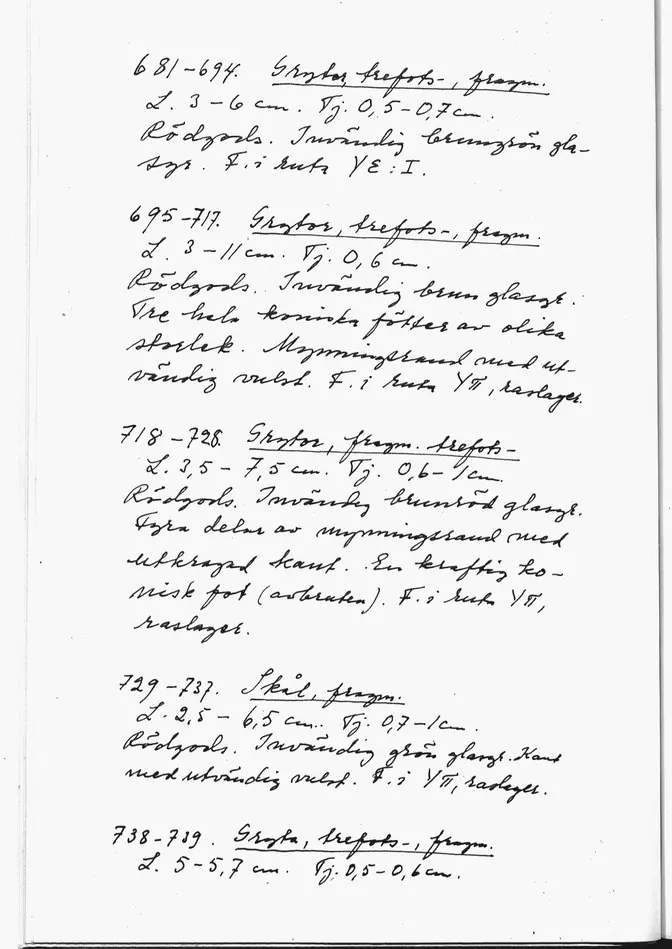 681-694. Grytor, trefots-, fragm.
L. 3-6 cm. Tj. 0,5-0,7 cm.
Rödgods. Invändig brungrön gla-
syr. F. i ruta YE:I.
695-717. Grytor, trefots-, fragm.
L. 3-11 cm. Tj. 0,6 cm.
Rödgods. Invändig brun glasyr.
Tre hela koniska fötter av olika
storlek. Mynningsrand med ut-
vändig vulst. F. i ruta YII, raslager.
718-728. Grytor, fragm. trefots-
L. 3,5-7,5 cm. Tj. 0,6-1 cm.
Rödgods. Invändig brunröd glasyr.
Fyra delar av mynningsrand med
utkragad kant. En kraftig ko-
nisk fot (avbruten). F. i ruta YII,
raslager.
729-737. Skål, fragm.
L. 2,5-6,5 cm. Tj. 0,7-1 cm.
Rödgods. Invändig grön glasyr. Kant
med utvändig vulst. F. i YII, raslager.
738-739. Gryta, trefots-, fragm.
L. 5-5,7 cm. Tj. 0,5-0,6 cm.